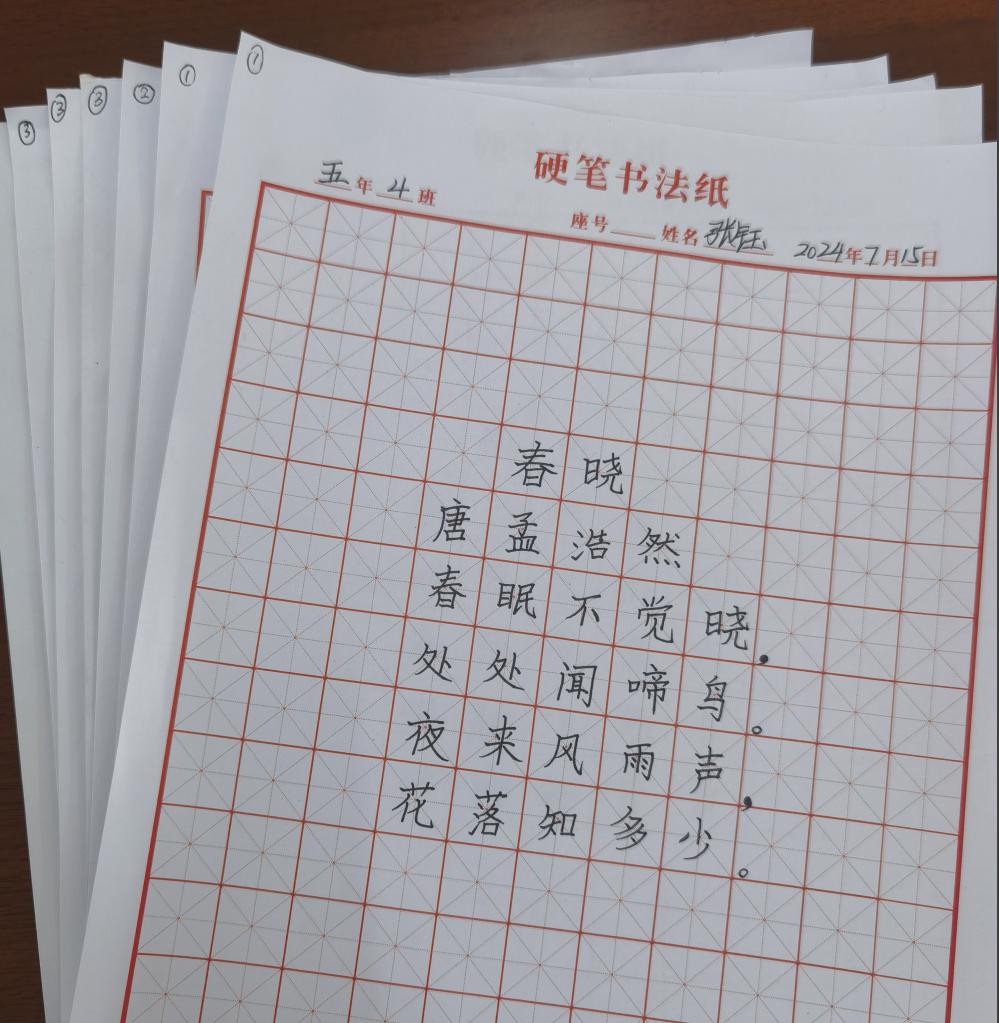 ③ ③ ③ ② ① ①
硬笔书法纸
五年4班
座号 姓名 张钰 2024年7月15日
春晓
唐孟浩然
春眠不觉晓，
处处闻啼鸟。
夜来风雨声，
花落知多少。